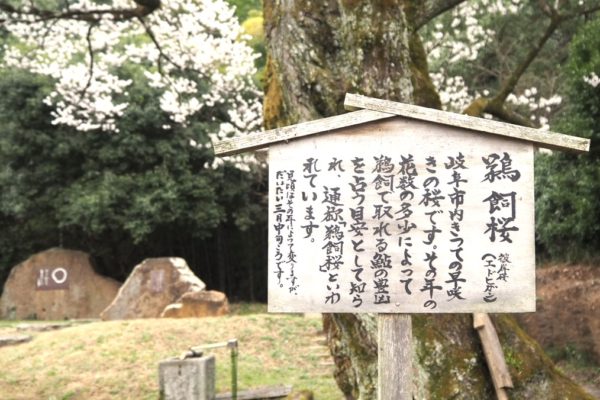 鵜飼桜
彼岸桜
(エドヒガン)
岐阜市内きっての早咲
きの桜です。その年の
花数の多少によって
鵜飼で取れる鮎の豊凶
を占う目安として知ら
れ、通称、鵜飼桜といわ
れています。
見頃はその年によって変りますが、
だいたい三月中旬ごろです。